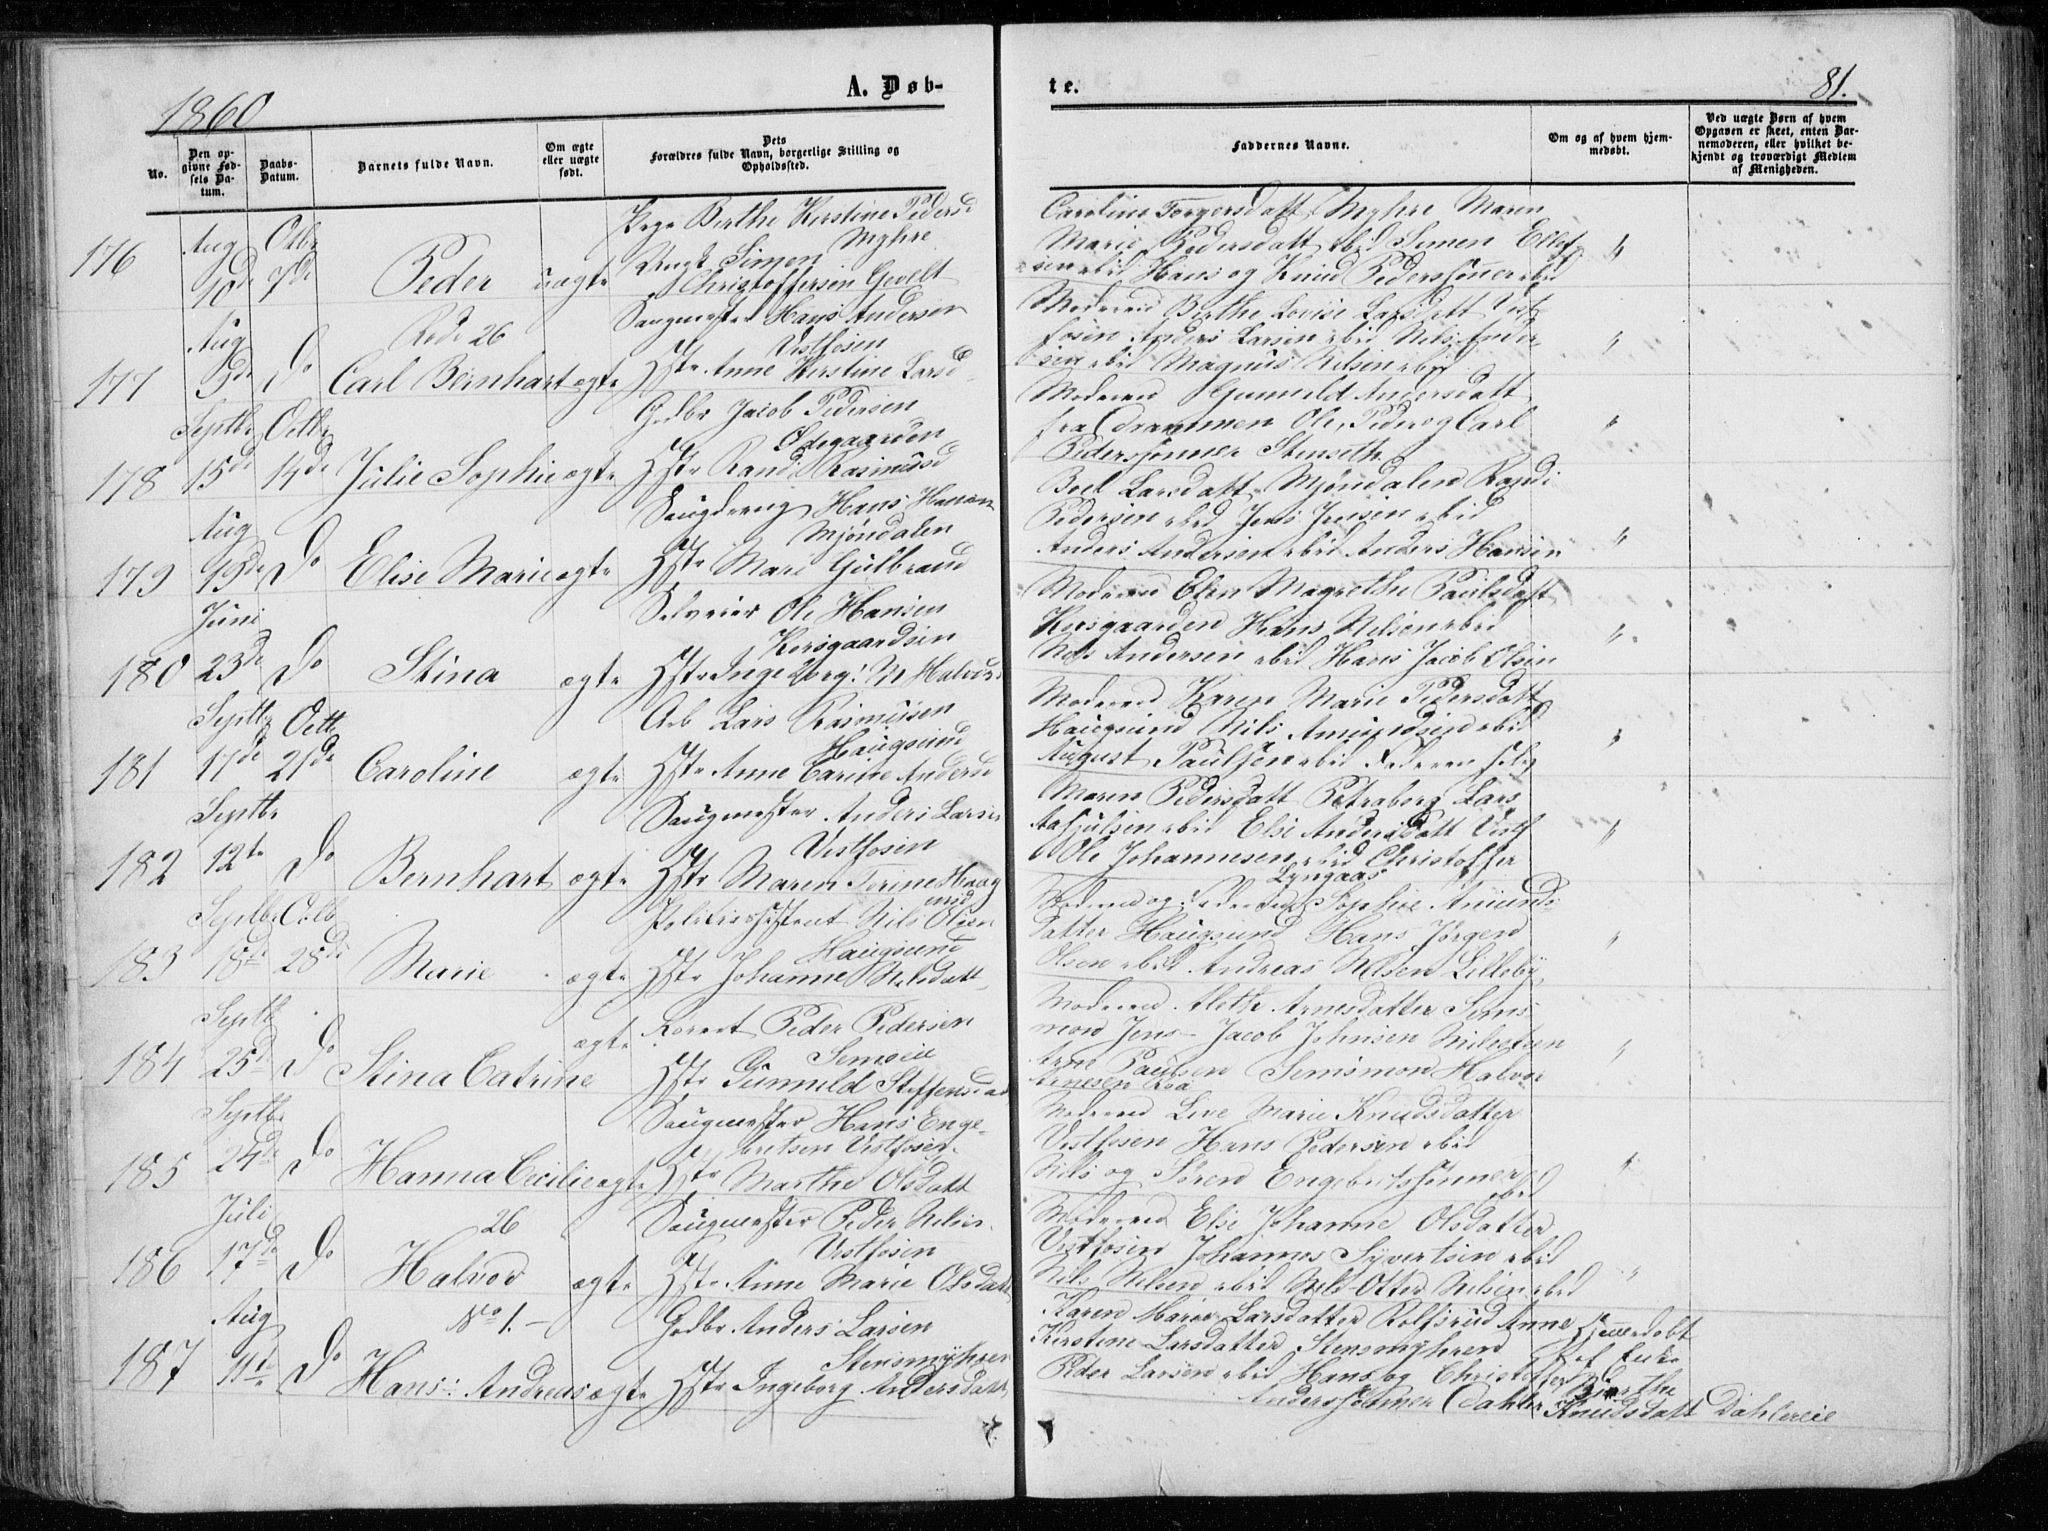 1860
A. Døb-
te.
81.
No.
Den opgivne Fødsels Datum.
Daabs-Datum.
Barnets fulde Navn.
Om ægte eller uægte født.
Dets Forældres fulde Navn, borgerlige Stilling og Opholdssted.
Faddernes Navne.
Om og af hvem hjemmedøbt.
Ved uægte Børn af hvem Opgaven er skeet, enten Barnemoderen, eller hvilket bekjendt og troværdigt Medlem af Menigheden.
176
Aug 10de
Octbr 7de
Peder
uægte
Pige Birthe Kirstine Pedersd
Myhre
Simon
Christoffersen Gevelt
Caroline Torgersdatt Myhre Maren
Marie Pedersdatt ibid Simen Ellef
sen ibid Hans og Knud Pederssønner ibid
177
Aug 9de
Do
26
Carl Bernhart
ægte
Saugmester Hans Andersen
Vestfosen
Hstr Anne Kirstine Larsd
Moderen Birthe Lovise Larsdatt Vest
fosen Anders Larsen ibid Nils Ander
sen ibid Magnus Nilsen ibid
178
Septbr 15de
Octbr 14de
Julie Sophie
ægte
Gdbr Jacob Pedersen
Ødegaarden
Hstr Randi Rasmusd
Moderen Gunnild Andersdatt
fra Drammen Ole, Peder og Carl
Pederssønner Stenseth
179
Aug 19de
Do
Elise Marie
ægte
Saugdreng Hans Hansen
Mjøndalen
Hstr Mari Gulbrand
Boel Larsdatt Mjøndalen Randi
Pedersen ibid Jens Jensen ibid
Anders Andersen ibid Anders Hansen
180
Juni 23de
Do
Stina
ægte
Selveier Ole Hansen
Korsgaardsen
Hstr Ingeborg M Halvors
Moderen Elen Magrethe Paulsdatt
Korsgaarden Hans Nilsen ibid
Nils Andersen ibid Hans Jacob Olsen
181
Septbr 17de
Octbr 21de
Caroline
ægte
Arb Lars Rasmusen
Haugsund
Hstr Anne Carine Andersd
Moderen Karen Marie Pedersdatt
Haugsund Nils Amundsen ibid
August Paulsen ibid Faderen selv
182
Septbr 12te
Do
Bernhart
ægte
Saugmester Anders Larsen
Vestfosen
Hstr Maren Torine
Maren Pedersdatt Petraborg Lars
ibid Else Andersdatt Vestf
Ole Johannesen ibid Christoffer
Lyngaas
183
Septbr 18de
Octb 28de
Marie
ægte
Politiassistent Nils Olsen
Haugsund
Hstr Johanne Nilsdatt
Moderen og Faderen Sophie Amunds
datter Haugsund Hans Jørgen
Olsen ibid Andreas Nilsen Lilleby
184
Septb 25de
Do
Stina Catrine
ægte
Peder Pedersen
Semseie
Hstr Gunnild Steffensdat
Moderen Alethe Arnesdatter Sems
moen Jens Jacob Johnsen
Arne Paulsen Semsmoen Halvor
Arnesen
185
Septbr 24de
Do
Hanna Cecilie
ægte
Saugmester Hans Enge-
bretsen Vestfosen
Hstr Marthe Olsdatt
Moderen Live Marie Knudsdatter
Vestfosen Hans Pedersen ibid
Nils og Søren Engebretssønner ibid
186
Juli 17de
Do
26
Halvor
ægte
Saugmester Peder Nilsen
Vestfosen
Hstr Anne Marie Olsdatt
Moderen Else Johanne Olsdatter
Vestfosen Johannes Syvertsen ibid
Nils Nilsen ibid Nils Otter Nilsen ibid
187
Aug 11te
Do
No 1.
Hans Andreas
ægte
Gdbr Anders Larsen
Stensmyhren
Hstr Ingeborg Andersdatt
Karen Marie Larsdatter Rolfsrud Anne
Kirstine Larsdatter Stensmyhren
Peder Larsen ibid Hans og Christoffer
Anderssønner Dahler
Hjemmedøbt
af Enke
Birthe
Knudsdatt Dahlereie